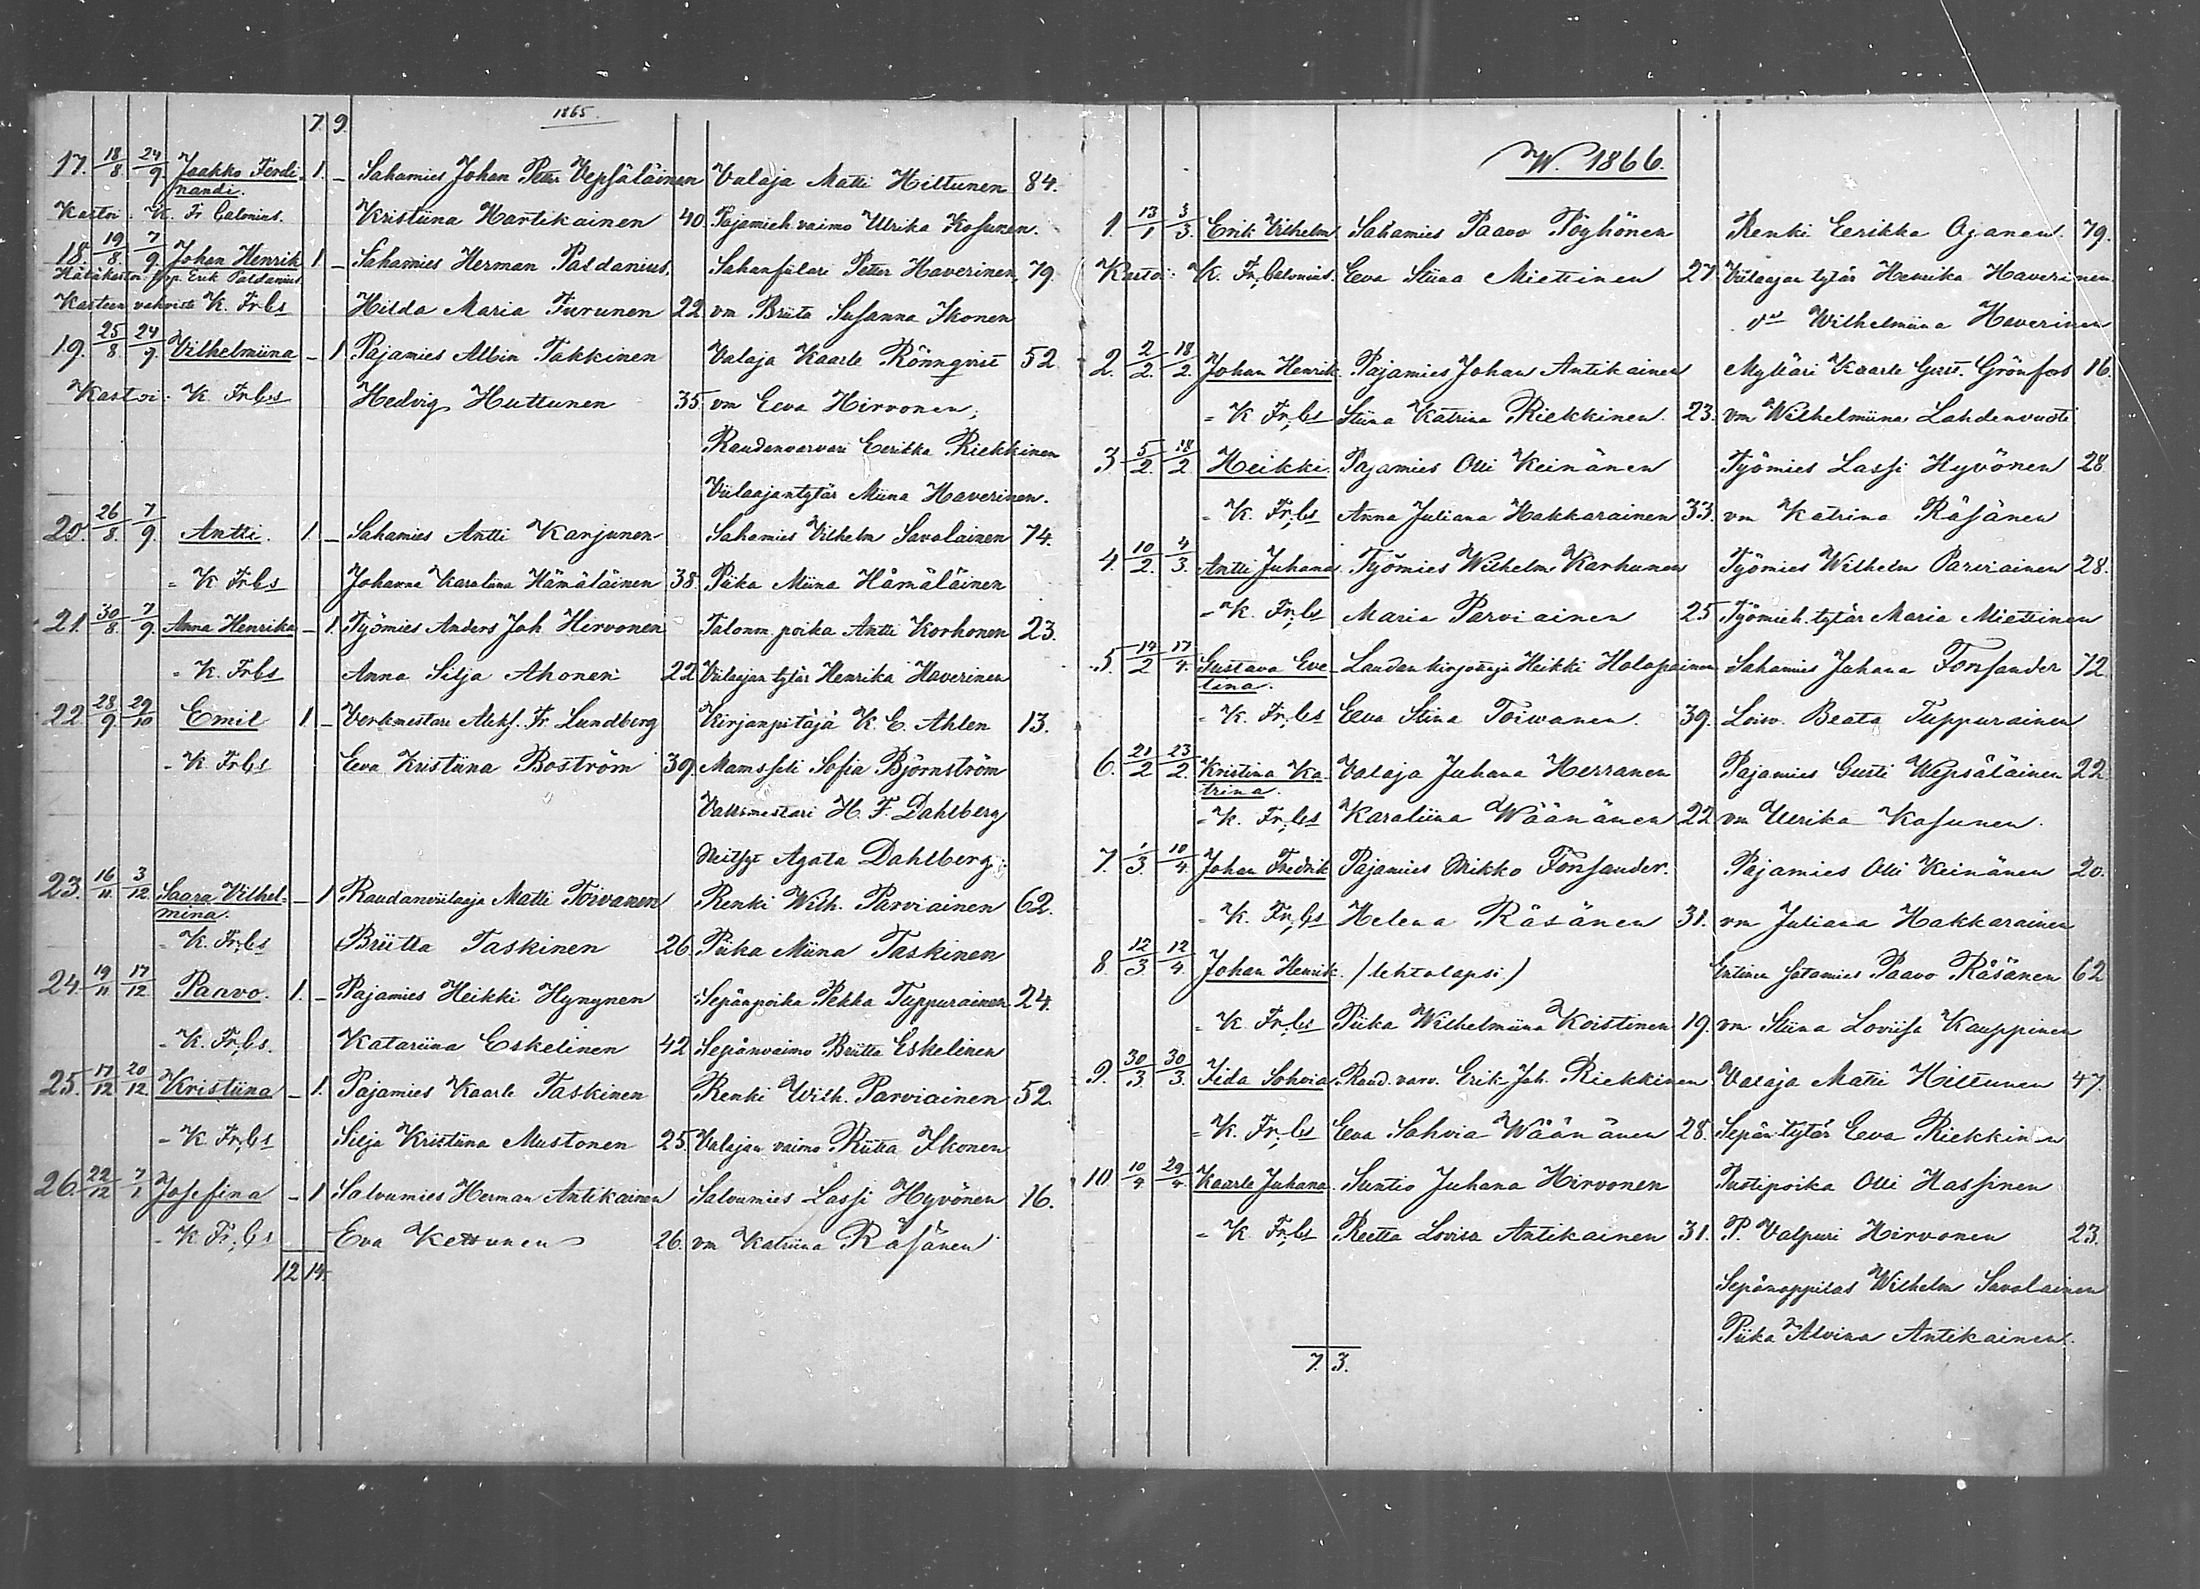 1865.
7. 9.
17. 18/8 24/9 Jaakko Ferdi- 1. _ Sahamies Johan Petter Vepsäläinen Valaja Matti Hiltunen 84.
nandi.
Kastoi: K. Fr Calonius. Kristiina Hartikainen 40. Pajamieh. vaimo Ulrika Kosunen.
18. 19/8 7/9 Johan Henrik 1 _ Sahamies Herman Paldanius, Sahanfiilari Petter Haverinen, 79.
Hätäkaston Erik Paldanius
Kasteen vahvisti K. Fr Cs Hilda Maria Turunen 22 vm Briita Susanna Ikonen
19. 25/8 24/9 Vilhelmiina _ 1 Pajamies Albin Takkinen Valaja Kaarle Rönnqvist 52
Kastoi: K FrCs Hedvig Huttunen 35 vm Eeva Hirvonen,
Raudanvarvari Eerikka Riekkinen
Viilaajantytär Miina Haverinen.
20. 26/8. 7/9. Antti. 1. _ Sahamies Antti Karjunen Sahamies Vilhelm Savolainen 74.
- K FrCs Johanna Karoliina Hämäläinen 38. Piika Miina Hämäläinen
21. 30/8. 7/9. Anna Henrika _ 1. Työmies Anders Joh Hirvonen Talonm. poika Antti Korhonen 23.
- K. FrCs Anna Silja Ahonen 22 Viilaajan tytär Henrika Haverinen
22 28/9 29/10 Emil 1. _ Verkmestari Aleks. Fr Lundberg Kirjanpitäjä K. E. Ahlen 13.
- K. FrCs Eva Kristiina Boström 39 Mamsseli Sofia Björnström
Valkimestari H. F. Dahlberg
Neitsyt Agata Dahlberg.
23. 16/11. 3/12. Saara Vilhel= _ 1 Raudanviilaaja Matti Toivanen Renki Wilh. Parviainen 62.
mina.
- K. Fr,Cs Briitta Taskinen 26. Piika Miina Taskinen
24. 19/11 17/12 Paavo. 1. _ Pajamies Heikki Hynynen Sepänpoika Pekka Tuppurainen 24.
- K. Fr,Cs. Katariina Eskelinen 42 Sepänvaimo Briitta Eskelinen
25. 17/12 20/12 Kristiina _ 1. Pajamies Kaarle Taskinen Renki Wilh. Parviainen 52.
- K. Fr,Cs Silja Kristiina Mustonen 25. Valajan vaimo Riitta Ikonen
26. 22/12 7/1 Josefina _ 1 Salvumies Herman Antikainen Salvumies Lassi Hyvönen 16.
- K. Fr,Cs Eva Kettunen 26. vm Katriina Räsänen
12 14.
W. 1866.
1. 13/1 3/3. Erik Vilhelm Sahamies Paavo Pöyhönen Renki Eerikka Ojanen. 79.
Kastoi: K. Fr,Calonius. Eeva Stiina Miettinen 27. Viilaajan tytär Henrika Haverinen
Wilhelmiina Haverinen
2. 2/2. 18/2. Johan Henrik Pajamies Johan Antikainen Mylläri Kaarle Gust. Grönfors 16.
- K Fr,Cs Stiina Katrina Riekkinen. 23. vm Wilhelmiina Lahdenvuoti
3 5/2. 18/2 Heikki. Pajamies Olli Keinänen Työmies Lassi Hyvönen 28.
- K. Fr,Cs Anna Juliana Hakkarainen 33. vm Katrina Räsänen
4. 10/2. 4/3. Antti Juhana. Työmies Wilhelm Karhunen Työmies Wilhelm Parviainen 28.
- K. Fr,Cs Maria Parviainen 25 Työmieh. tytär Maria Miettinen
5 14/2 17/4. Gustava Eve- Laudan kirjoittaja Heikki Holopainen Sahamies Juhana Forsander 72.
lina.
- K. Fr,Cs Eeva Stina Toivanen. 39. Loisv. Beata Tuppurainen
6. 21/2 23/2. Kristina Ka- Valaja Juhana Herranen Pajamies Gusti Wepsäläinen 22.
trina.
- K. Fr,Cs Karoliina Wäänänen 22. vm Ulrika Kosunen.
7. 1/3. 10/4. Johan Fredrik Pajamies Mikko Forsander. Pajamies Olli Keinänen 20.
- K. Fr,Cs Helena Räsänen 31. vm Juliana Hakkarainen
8. 12/3 12/4. Johan Henrik. /lehtolapsi/ Entinen Sotamies Paavo Räsänen 62
- K. Fr,Cs Piika Wilhelmiina Koistinen 19. vm Stiina Loviisa Kauppinen
9. 30/3. 30/3. Iida Sohvia. Raud. varv. Erik Joh. Riekkinen Valaja Matti Hiltunen 47.
- K. Fr,Cs Eeva Sohvia Wäänänen 28. Sepän tytär Eeva Riekkinen
10 10/4 29/4. Kaarle Juhana. Suntio Juhana Hirvonen Pustipoika Olli Hassinen
- K Fr,Cs Reetta Lovisa Antikainen 31. P. Valpuri Hirvonen 23.
Sepänoppilas Wilhelm Savolainen
Piika Alvina Antikainen.
7. 3.